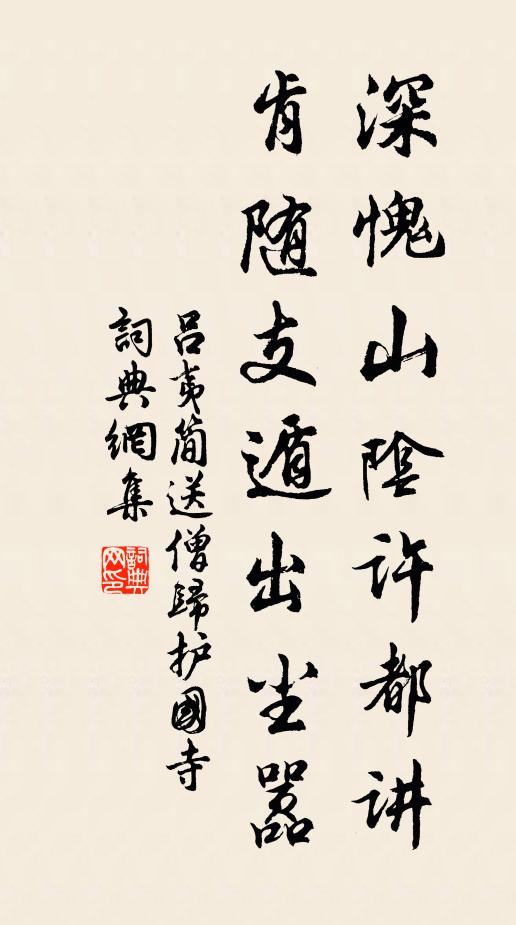 深愧山陰许都讲
肯随支遁出尘嚣
吕夷简送僧歸护國寺
詞典網集
詞典网印